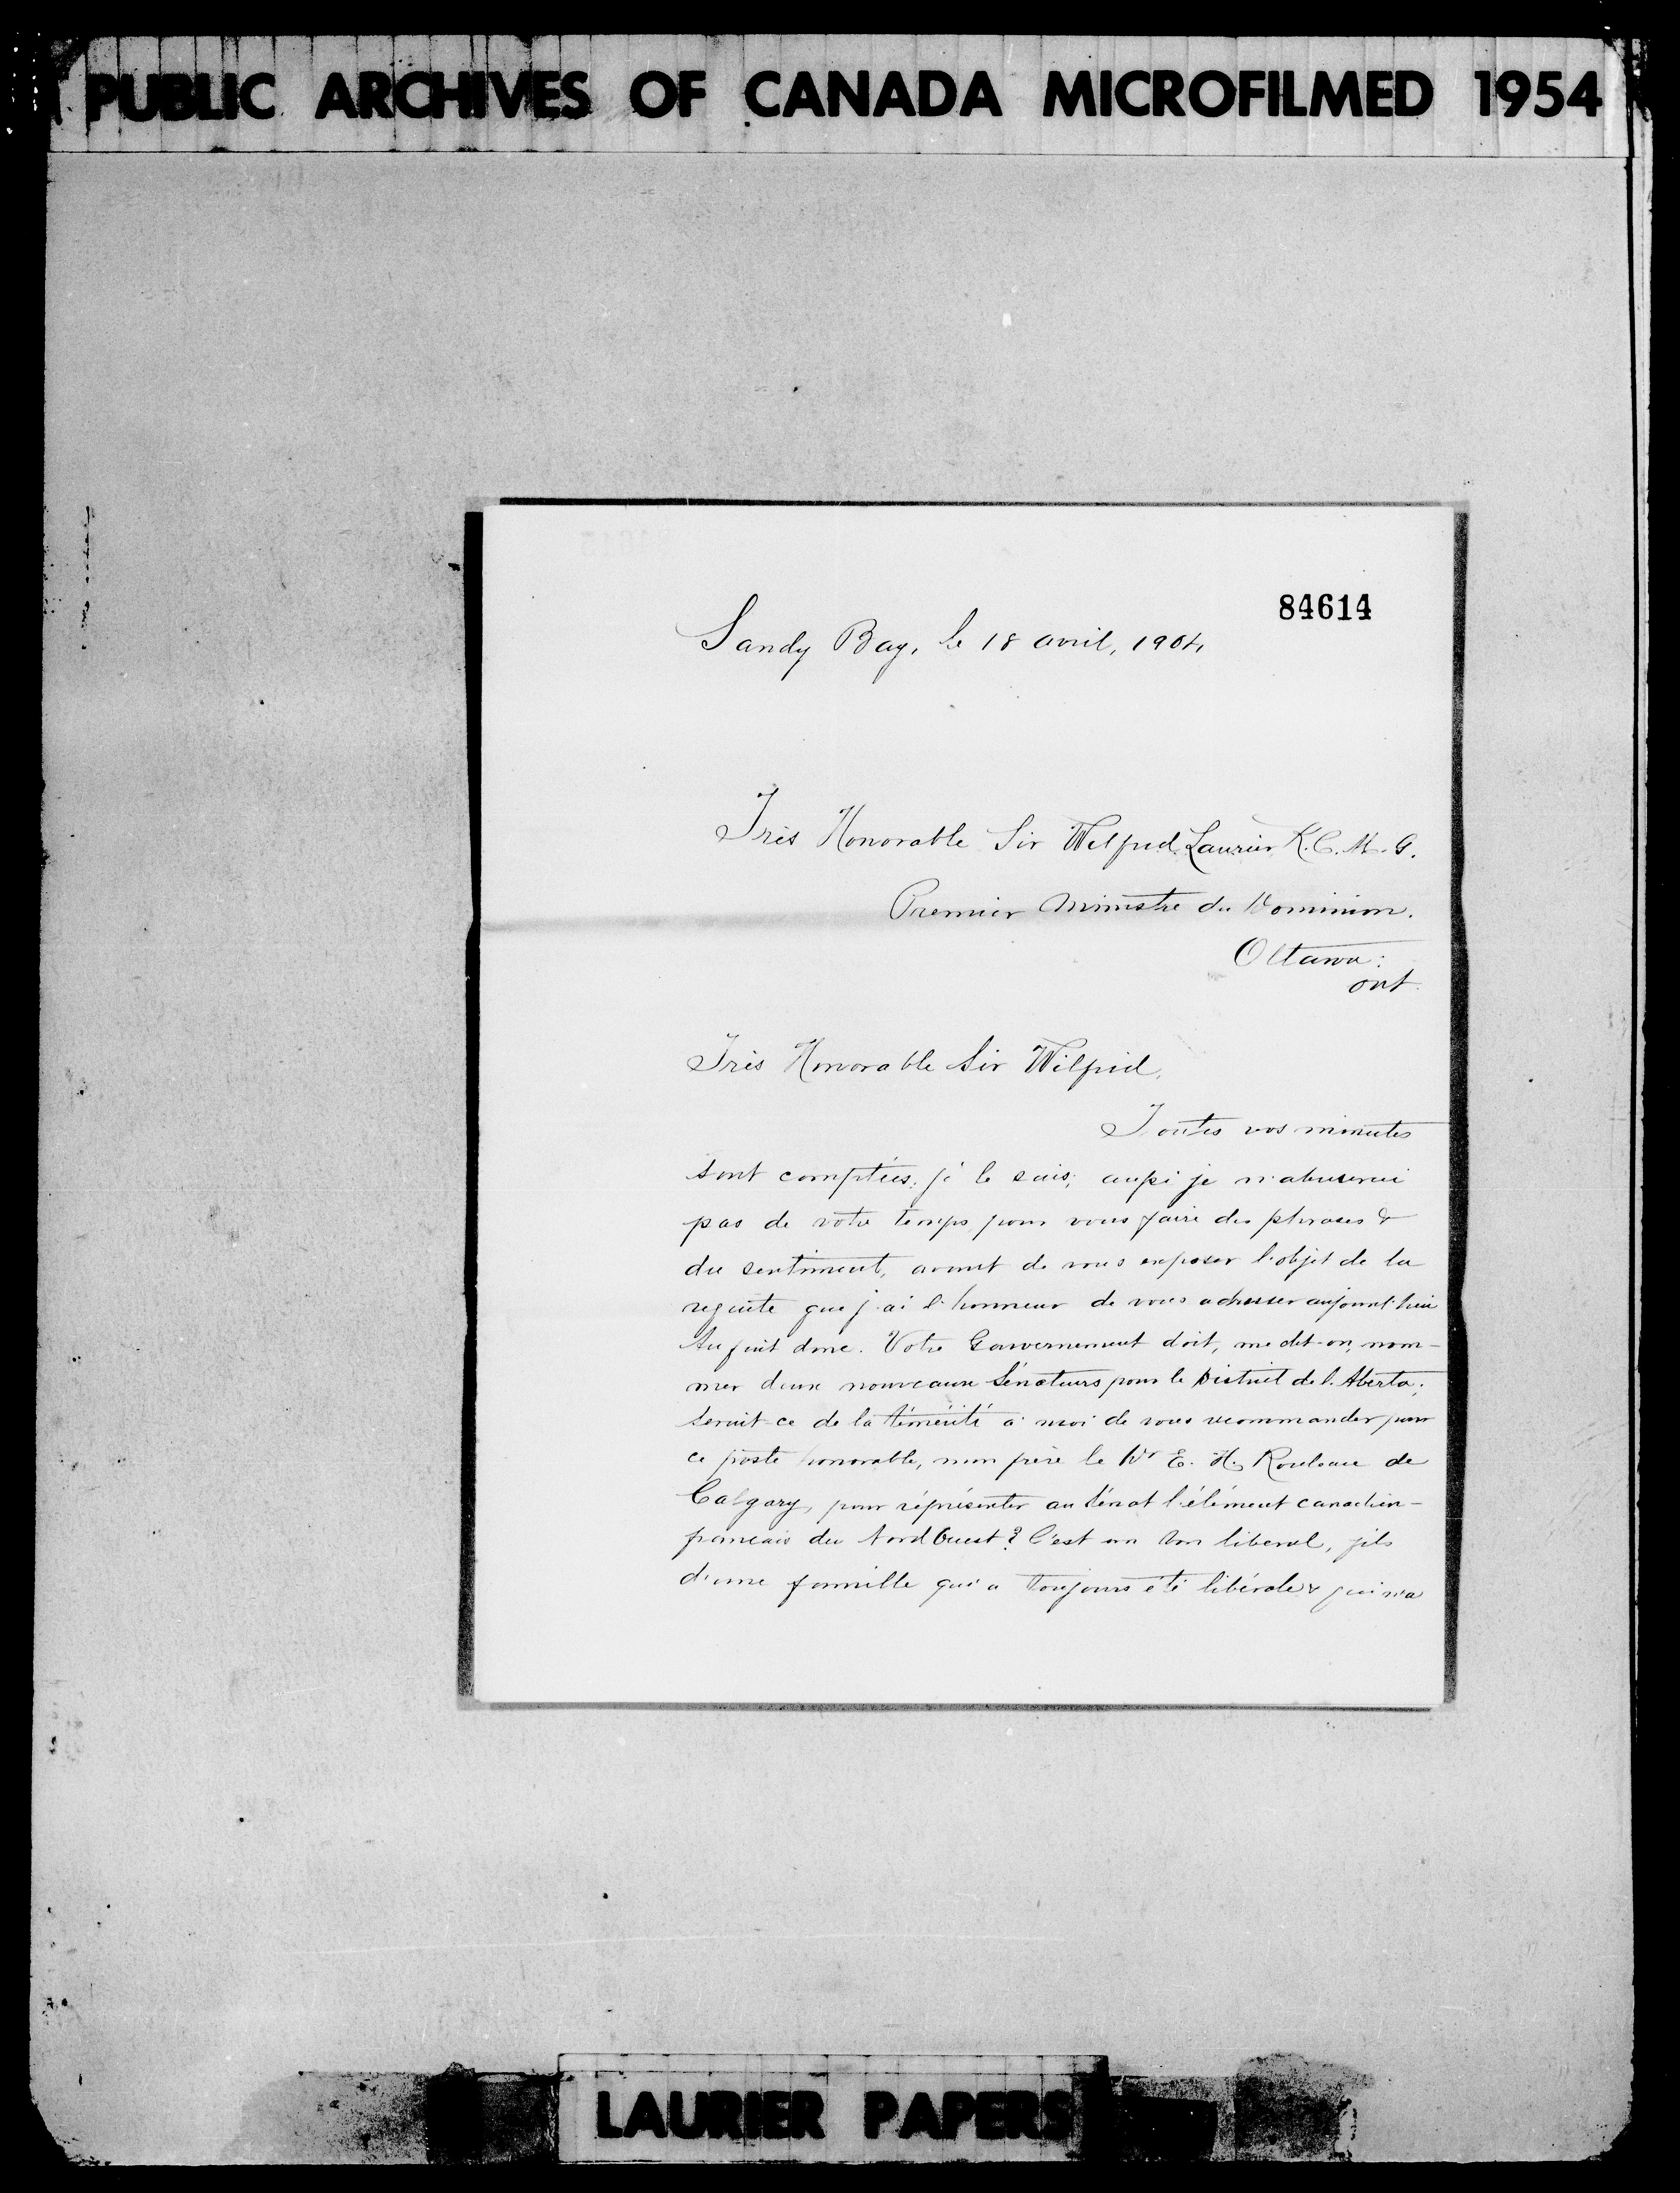 PUBLIC ARCHIVES OF CANADA MICROFILMED 1954
84614
Sandy Bay, le 18 avril, 1904,
Très Honorable Sir Wilfrid Laurier K.C.M.G.
Premier Ministre du Dominion.
Ottawa:
ont.
Très Honorable Sir Wilfrid,
Toutes vos minutes
sont comptées, je le sais; aussi je n'abuserai
pas de votre temps pour vous faire des phrases &
du sentiment, avant de vous exposer l'objet de la
requête que j'ai l'honneur de vous adresser aujourd'hui
Au fait donc. Votre Gouvernement doit, me dit-on, nom-
mer deux nouveaux Sénateurs pour le District de l'Alberta.
Serait-ce de la témérité à moi de vous recommander pour
ce poste honorable, mon frère le Dr E. H. Rouleau de
Calgary, pour réprésenter au Sénat l'élément canadien-
francais du Nord Ouest? C'est un bon libéral, fils
d'une famille qui a toujours été libérale & qui n'a
LAURIER PAPERS